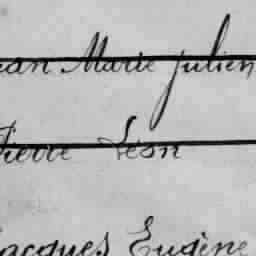 ean Marie Julien
Pierre Léon
Jacques Eugène